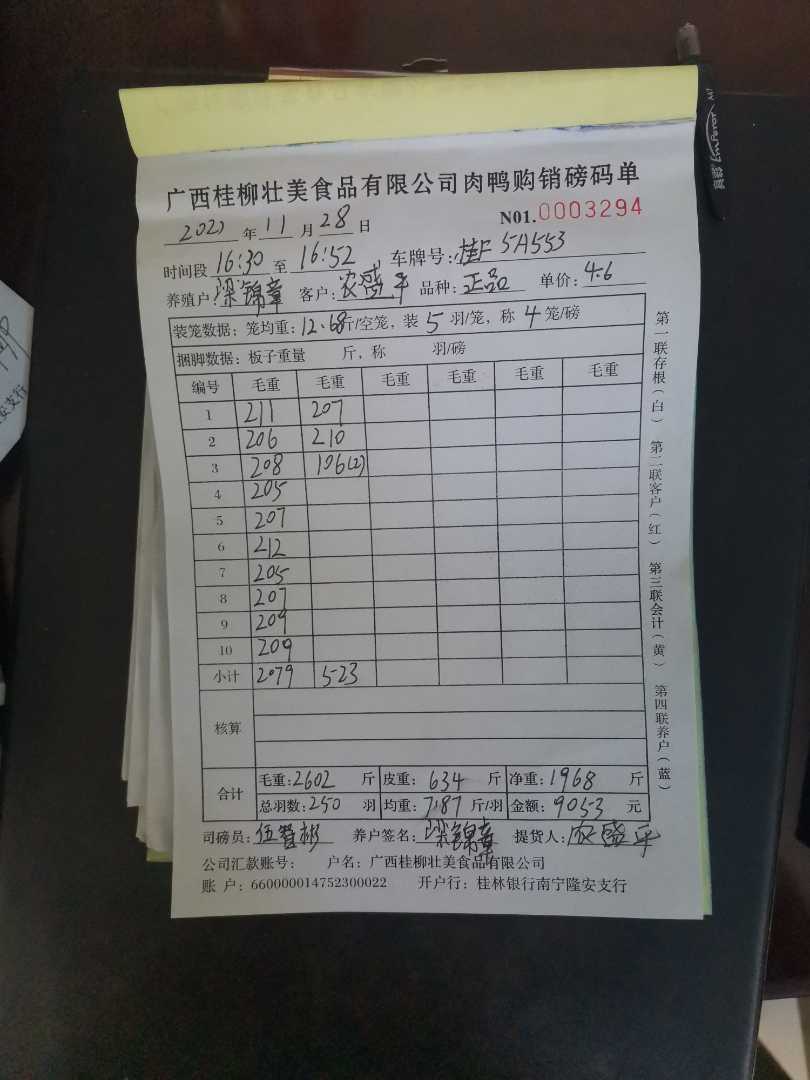 广西桂柳壮美食品有限公司肉鸭购销磅码单
2021 年 11 月 28 日 N01.0003294
时间段 16:30 至 16:52 车牌号: 桂F 5A553
养殖户: 梁锦章 客户: 农盛平 品种: 正品 单价: 4.6
装笼数据: 笼均重: 12.68斤/空笼, 装 5 羽/笼, 称 4 笼/磅
捆脚数据: 板子重量 斤, 称 羽/磅
编号 毛重 毛重 毛重 毛重 毛重 毛重
1 211 207
2 206 210
3 208 106(2)
4 205
5 207
6 212
7 205
8 207
9 209
10 209
小计 2079 523
核算
合计 毛重: 2602 斤 皮重: 634 斤 净重: 1968 斤
总羽数: 250 羽 均重: 7.87 斤/羽 金额: 9053 元
司磅员: 伍智彬 养户签名: 梁锦章 提货人: 农盛平
公司汇款账号: 户名: 广西桂柳壮美食品有限公司
账 户: 660000014752300022 开户行: 桂林银行南宁隆安支行
第一联存根(白) 第二联客户(红) 第三联会计(黄) 第四联养户(蓝)
安支行